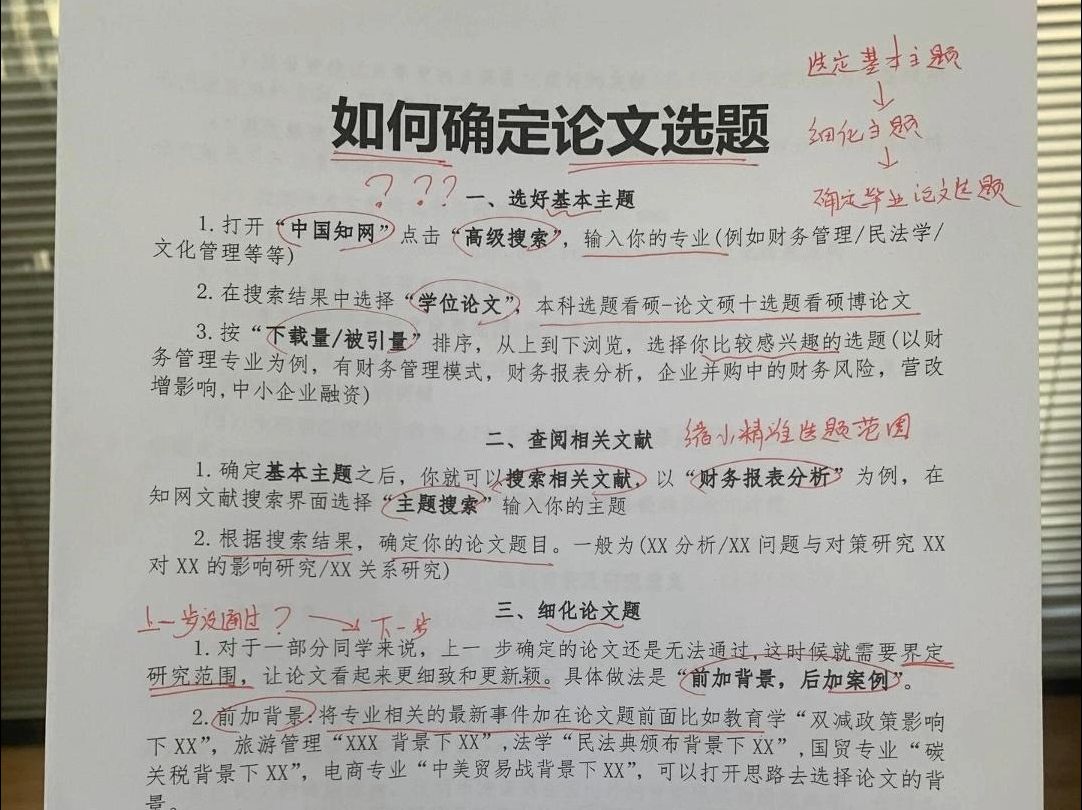 选定基本主题
↓
细化主题
↓
确定毕业论文选题
如何确定论文选题
? ? ?
一、选好基本主题
1. 打开“中国知网”点击“高级搜索”，输入你的专业(例如财务管理/民法学/
文化管理等等)
2. 在搜索结果中选择“学位论文”，本科选题看硕-论文硕十选题看硕博论文
3. 按“下载量/被引量”排序，从上到下浏览，选择你比较感兴趣的选题(以财
务管理专业为例，有财务管理模式，财务报表分析，企业并购中的财务风险，营改
增影响,中小企业融资)
二、查阅相关文献 缩小精准选题范围
1. 确定基本主题之后，你就可以搜索相关文献，以“财务报表分析”为例，在
知网文献搜索界面选择“主题搜索”输入你的主题
2. 根据搜索结果，确定你的论文题目。一般为(XX 分析/XX 问题与对策研究 XX
对 XX 的影响研究/XX 关系研究)
三、细化论文题
上一步没通过？→下一步
1. 对于一部分同学来说，上一 步确定的论文还是无法通过,这时候就需要界定
研究范围，让论文看起来更细致和更新颖。具体做法是“前加背景，后加案例”。
2. 前加背景:将专业相关的最新事件加在论文题前面比如教育学“双减政策影响
下 XX”，旅游管理“XXX 背景下 XX”,法学“民法典颁布背景下 XX”,国贸专业“碳
关税背景下 XX”，电商专业“中美贸易战背景下 XX”，可以打开思路去选择论文的背
景。